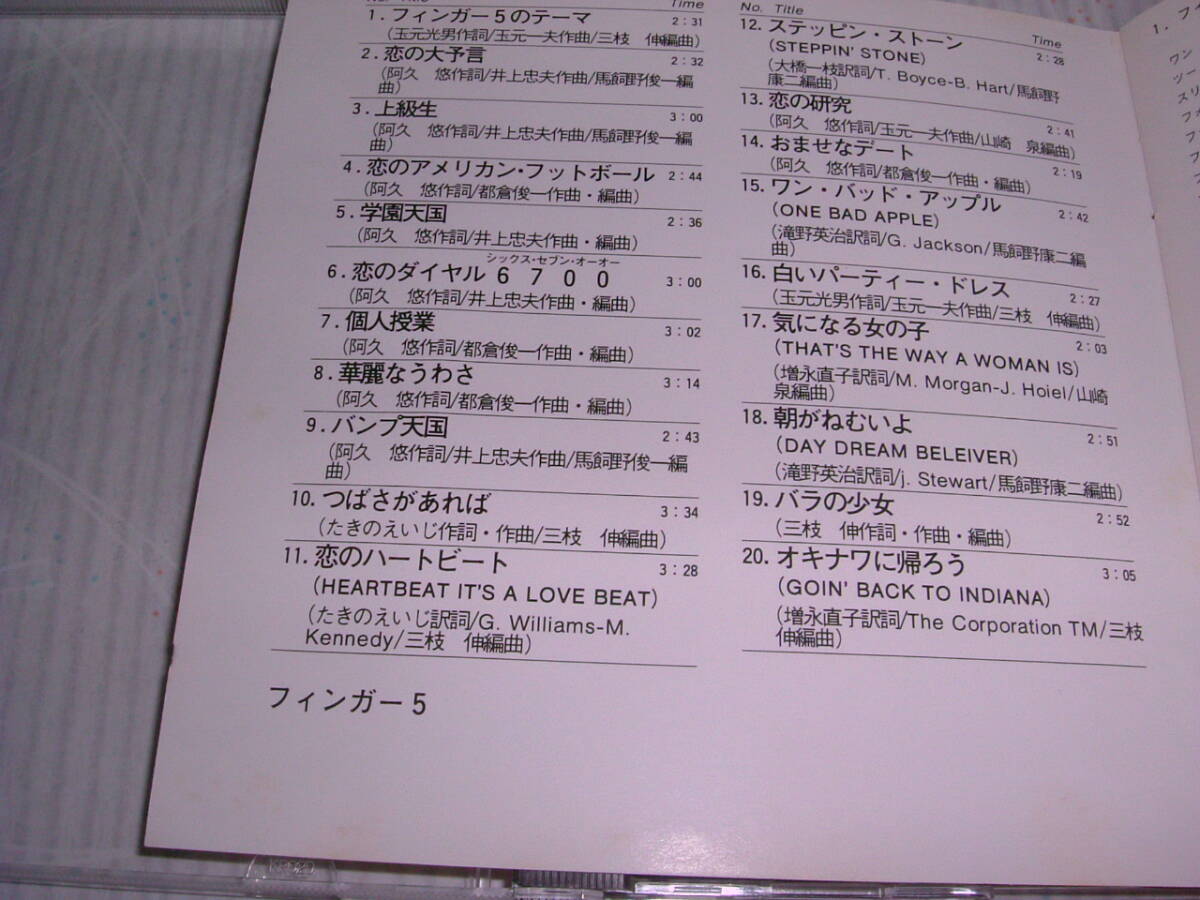 No. Title Time
1. フィンガー5のテーマ 2:31
(玉元光男作詞/玉元一夫作曲/三枝 伸編曲)
2. 恋の大予言 2:32
(阿久 悠作詞/井上忠夫作曲/馬飼野俊一編
曲)
3. 上級生 3:00
(阿久 悠作詞/井上忠夫作曲/馬飼野俊一編
曲)
4. 恋のアメリカン・フットボール 2:44
(阿久 悠作詞/都倉俊一作曲・編曲)
5. 学園天国 2:36
(阿久 悠作詞/井上忠夫作曲・編曲)
シックス・セブン・オーオー
6. 恋のダイヤル 6 7 0 0 3:00
(阿久 悠作詞/井上忠夫作曲・編曲)
7. 個人授業 3:02
(阿久 悠作詞/都倉俊一作曲・編曲)
8. 華麗なうわさ 3:14
(阿久 悠作詞/都倉俊一作曲・編曲)
9. バンプ天国 2:43
(阿久 悠作詞/井上忠夫作曲/馬飼野俊一編
曲)
10. つばさがあれば 3:34
(たきのえいじ作詞・作曲/三枝 伸編曲)
11. 恋のハートビート 3:28
(HEARTBEAT IT'S A LOVE BEAT)
(たきのえいじ訳詞/G. Williams-M.
Kennedy/三枝 伸編曲)
フィンガー5
No. Title Time
12. ステッピン・ストーン 2:28
(STEPPIN' STONE)
(大橋一枝訳詞/T. Boyce-B. Hart/馬飼野
康二編曲)
13. 恋の研究 2:41
(阿久 悠作詞/玉元一夫作曲/山崎 泉編曲)
14. おませなデート 2:19
(阿久 悠作詞/都倉俊一作曲・編曲)
15. ワン・バッド・アップル 2:42
(ONE BAD APPLE)
(滝野英治訳詞/G. Jackson/馬飼野康二編
曲)
16. 白いパーティー・ドレス 2:27
(玉元光男作詞/玉元一夫作曲/三枝 伸編曲)
17. 気になる女の子 2:03
(THAT'S THE WAY A WOMAN IS)
(増永直子訳詞/M. Morgan-J. Hoiel/山崎
泉編曲)
18. 朝がねむいよ 2:51
(DAY DREAM BELEIVER)
(滝野英治訳詞/j. Stewart/馬飼野康二編曲)
19. バラの少女 2:52
(三枝 伸作詞・作曲・編曲)
20. オキナワに帰ろう 3:05
(GOIN' BACK TO INDIANA)
(増永直子訳詞/The Corporation TM/三枝
伸編曲)
1. フ
ワン
ツー
スリ
フ
フ
フ